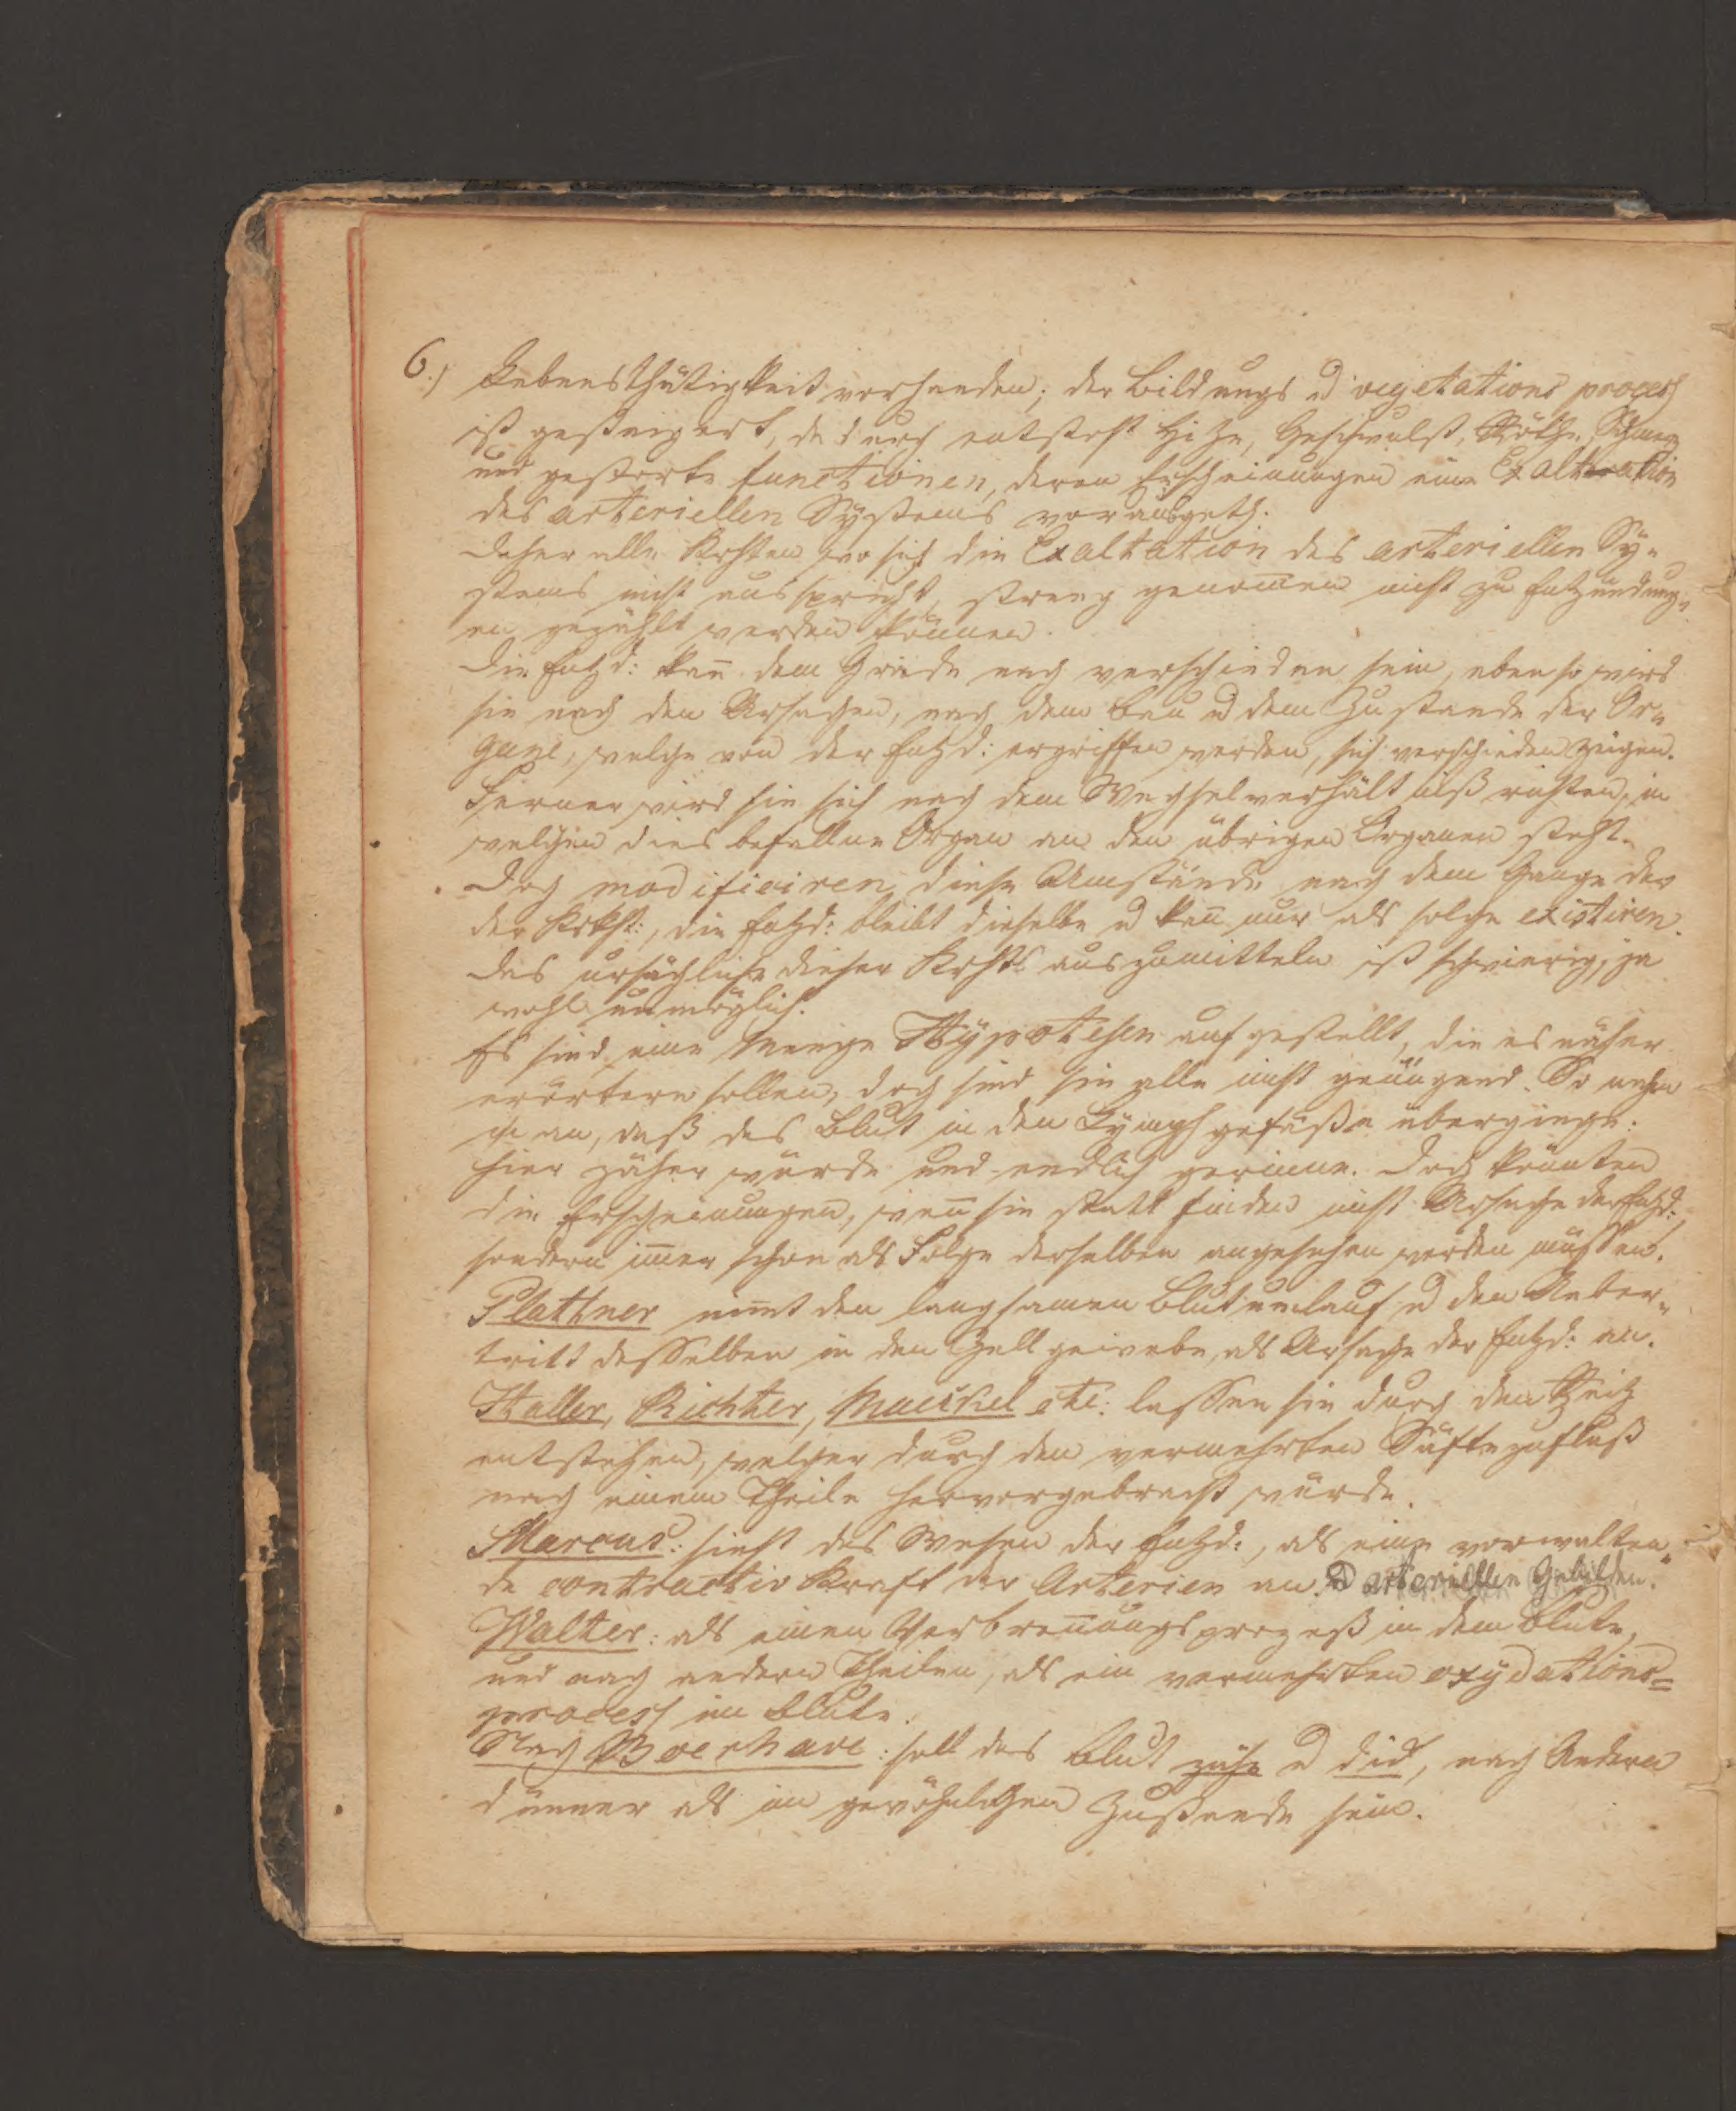 6.) Lebensthätigkeit vorhanden; der Bildungs u vegetations process
ist gesteigert, dadurch entsteht Hitze, Geschwulst, Röthe, Schmerz
und gestörte functionen, deren Erscheinungen eine Exaltation
des arteriellen Systems vorausgeth.
Daher alle Krhten wo sich die Exaltation des arteriellen Sy-
stems nicht ausspricht, streng genom̄en nicht zu Entzündung-
en gezählt werden können.
Die Entzd: kan̄ dem Grade nach verschieden sein, eben so wird
sie nach den Ursachen, nach dem Bau u dem Zustande der Or-
gane, welche von der Entzd: ergriffen werden, sich verschieden zeigen.
Ferner wird sie sich nach dem Wechselverhältniß richten, in
welchen dies befallne Organ an den übrigen Organen steht.
Doch modificiren diese Umstände nach dem Gange der
der Krkht:, die Entzd: bleibt dieselbe u kan̄ nur als solche existiren.
Das ursächliche dieser Krhts auszumitteln ist schwierig, ja
wohl unmöglich.
Es sind eine Menge Hypotesen aufgestellt, die es näher
erörtern sollen, doch sind sie alle nicht genügend. So nahm
m an, daß das Blut in den Lymphgefäße überginge:
hier zäher würde und endlich gerinne. Doch könnten
die Erscheinungen, wen̄ sie statt finden nicht Ursache der Entzd:,
sondern im̄er schon als Folge derselben angesehen werden müssen.
Plattner nim̄t den langsamen Blutumlauf u den Ueber-
tritt desselben in den Zellgewebe, als Ursache der Entzd: an.
Haller, Richter, Maeckel etc: lassen sie durch den Reitz
entstehen, welcher durch den vermehrten Säftezufluß
nach einem Theile hervorgebracht würde.
Marcus: sieht das Wesen der Entzd:, als eine vorwalten-
de contractiv Kraft der Arterien an. u arteriellen Gebilden.
Walter: als einen Verbren̄ungsprozeß in dem Blute,
und nach andern Theilen, als ein vermehrten oxydations=
process im Blute.
Nach Boerhave: soll das Blut zähe u dick, nach Andern
dünner als im gewöhnlichen Zustande sein.